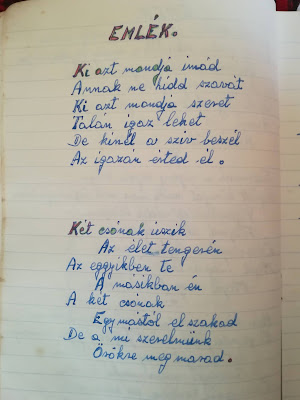 EMLÉK.
Ki azt mondja imád
Annak ne hidd szavát
Ki azt mondja szeret
Talán igaz lehet
De kinél a sziv beszél
Az igazán érted él.
Két csónak úszik
Az élet tengerén
Az eggyikben te
A másikban én
A két csónak
Egymástól elszakad
De a mi szerelmünk
Örökre megmarad.